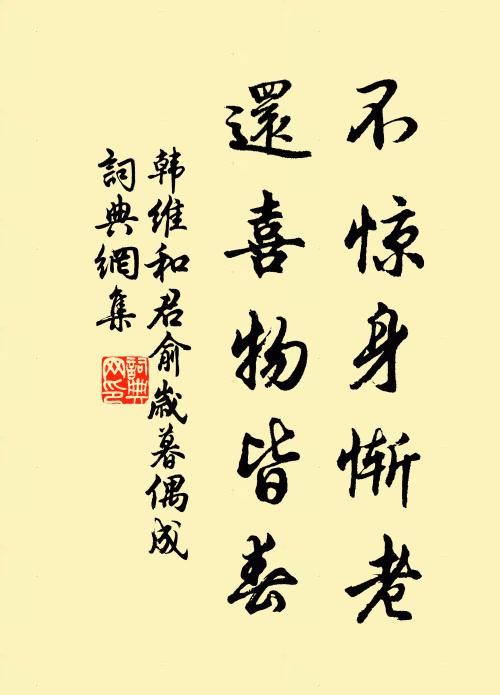 不惊身惭老
還喜物皆春
韩维和君俞歲暮偶成
詞典網集
詞典网印